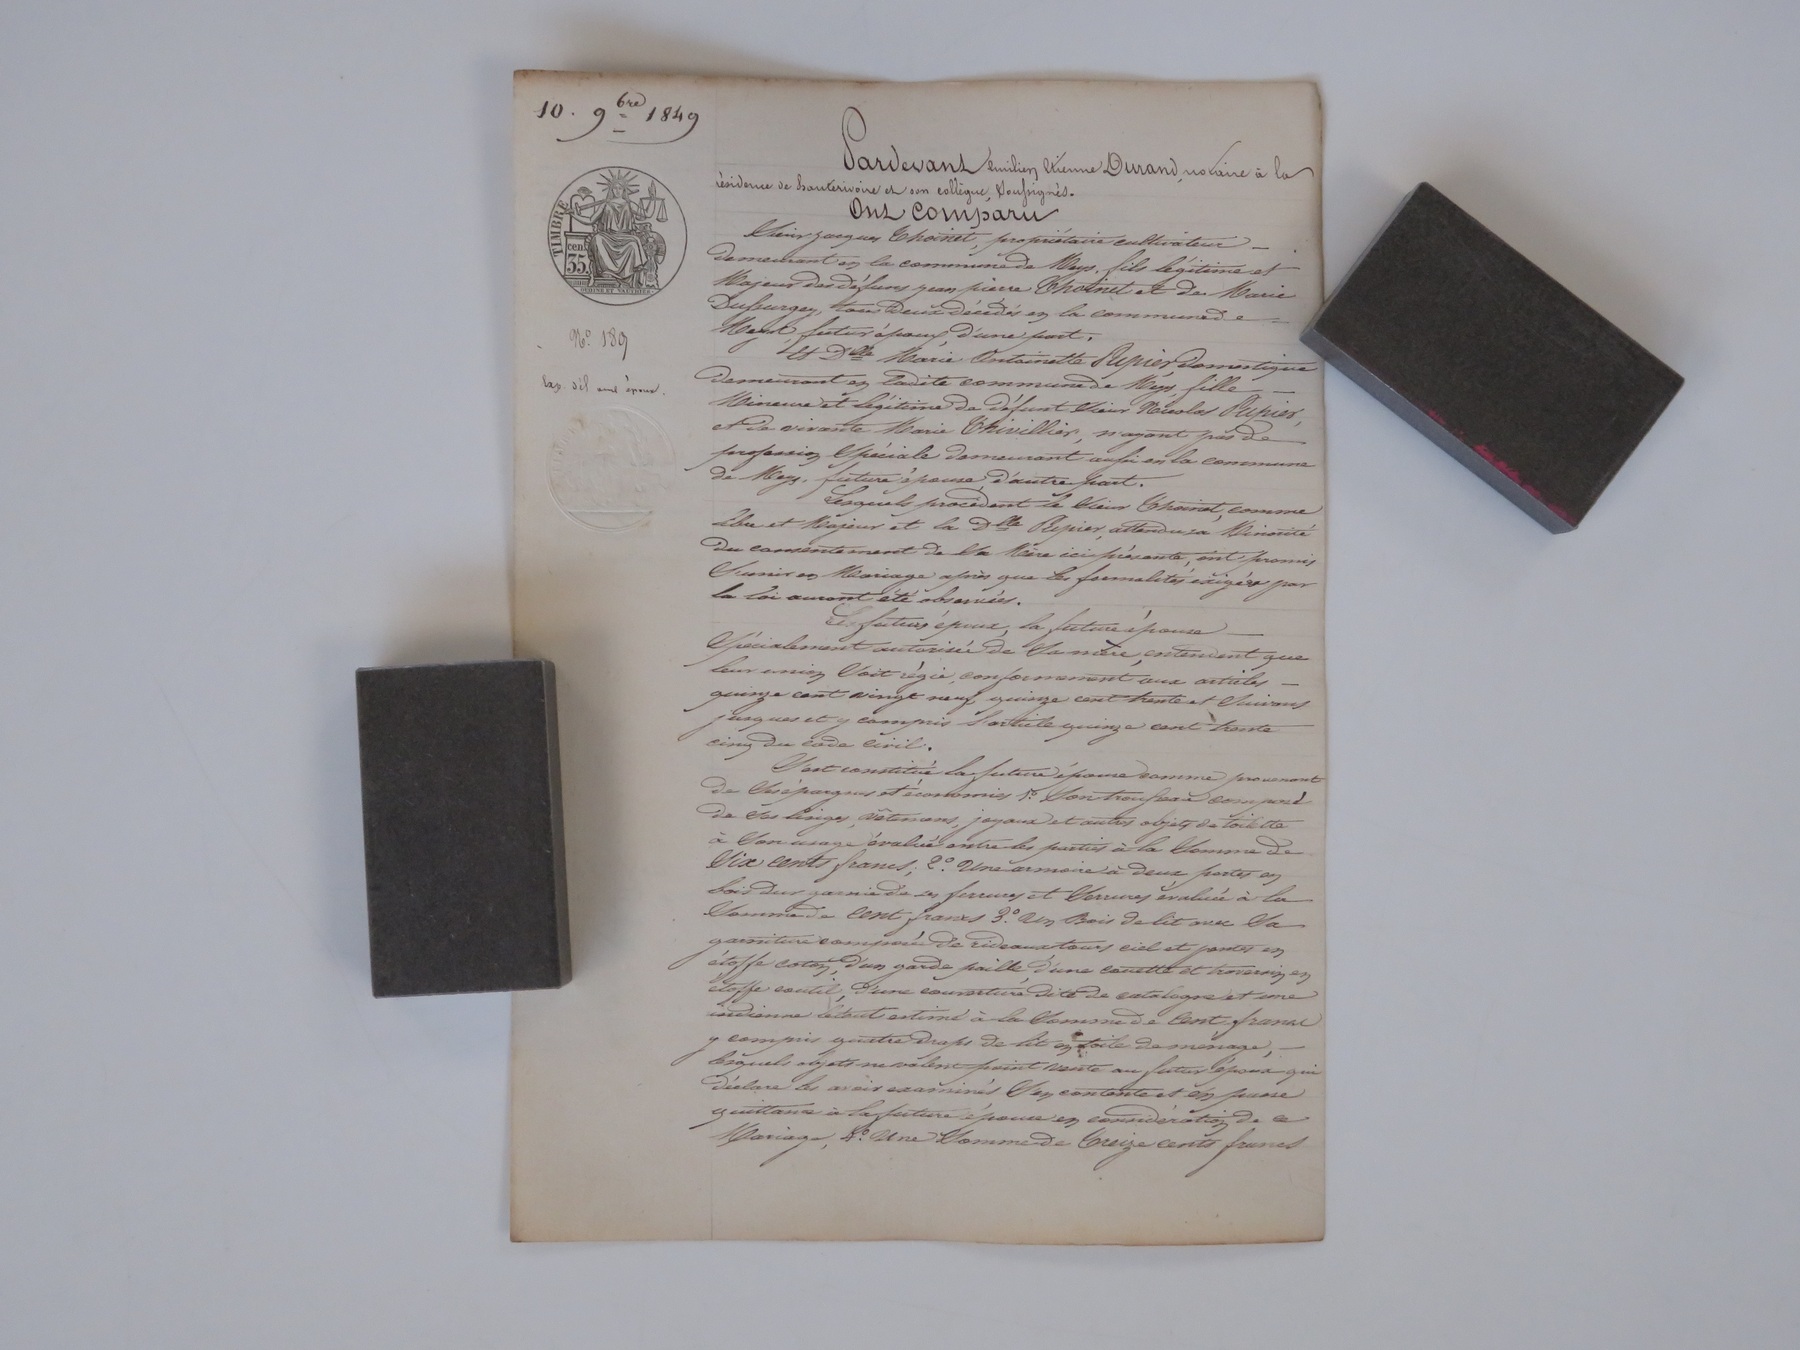 10. 9bre 1849
TIMBRE
cen.
35.
No 189
Exp. dél aux époux.
Pardevant Emilien Etienne Durand, notaire à la
résidence de hauterivoire et son collègue, soussignés.
Ont comparu
Sieur jacques Thoinet, propriétaire cultivateur
demeurant en la commune de Meys, fils légitime et
Majeur des défunts jean pierre Thoinet et de Marie
tous deux décédés en la commune de
Meys, futur époux, d'une part.
Et Dlle Marie Antoinette Ripier domestique
demeurant en ladite commune de Meys fille
Mineure et légitime de défunt Sieur Nicolas Ripier,
et de vivante Marie Thivillier, n'ayant pas de
profession Spéciale demeurant aussi en la commune
de Meys, future épouse, d'autre part.
Lesquels procédant le Sieur Thoinet, comme
libre et Majeur et la Dlle Ripier, attendu sa Minorité
du consentement de Sa Mère ici présente, ont promis
S'unir en Mariage après que les formalités exigées par
la loi auront été observées.
Les futurs époux, la future épouse
Spécialement autorisée de Sa mère, entendent que
leur union Soit régie, conformément aux articles
quinze cent vingt neuf, quinze cent trente et Suivans
jusques et y compris l'article quinze cent trente
cinq du code civil.
S'est constitué la future épouse comme provenant
de Ses épargnes et économies 1o Son trousseau composé
de Ses linges, vêtemens, joyaux et autres objets de toilette
à Son usage évalué entre les parties à la Somme de
Six cents francs, 2o. Une armoire à deux portes en
bois dur garnie de ses ferrures et Serrures évaluée à la
Somme de Cent francs 3o. Un Bois de lit avec Sa
garniture composée de rideaux tours ciel et pentes en
étoffe coton, d'un garde paille d'une couette et traversin en
étoffe coutil, d'une couverture dite de catalogne et une
indienne le tout estimé à la Somme de Cent francs
y compris quatre draps de lit en toile de ménage,
lesquels objets ne valent point vente au futur époux qui
déclare les avoir examinés S'en contente et en passe
quittance à la future épouse en considération de ce
Mariage, 4o. Une Somme de Treize cents francs